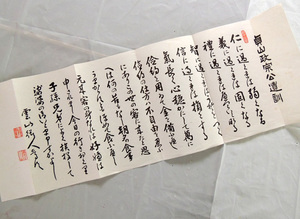 貞山政宗公遺訓
仁に過ぎれば弱くなる
義に過ぎれば固くなる
禮に過ぎれば諂となる
智に過ぎれば嘘をつく
信に過ぎれば損をする
氣長く心穏かにして萬に
儉約を用い金を備ふべし
儉約の仕方は不自由を忍ぶ
にあり此の世に客に来たと思
へば何の苦もなし朝夕の食事
うまからずともほめて食ふべし
元来客の身なれば好嫌は
申されまじ今日の行を送り
子孫兄弟によく挨拶して
娑婆の御暇申すがよし